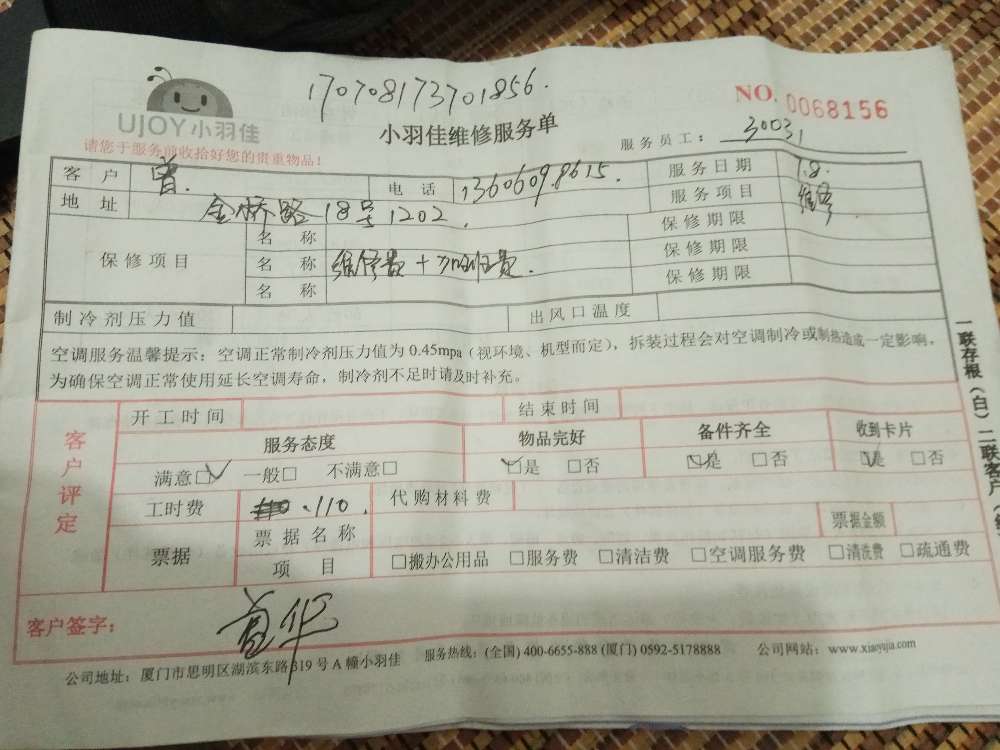 170708173701856.
NO. 0068156
UJOY小羽佳
小羽佳维修服务单
服务员工: 30031
请您于服务前收拾好您的贵重物品!
客户 曾. 电话 13606098615. 服务日期 1.8.
地址 金桥路18号1202. 服务项目 维修
保修项目 名称 保修期限
名称 维修费+加班费. 保修期限
名称 保修期限
制冷剂压力值 出风口温度
空调服务温馨提示: 空调正常制冷剂压力值为0.45mpa(视环境、机型而定), 拆装过程会对空调制冷或制热造成一定影响,
为确保空调正常使用延长空调寿命, 制冷剂不足时请及时补充。
一联存根(白)二联客户
客户评定
开工时间 结束时间
服务态度 物品完好 备件齐全 收到卡片
满意□ 一般□ 不满意□ □是 □否 □是 □否 □是 □否
工时费 110. 代购材料费
票据 票据名称 票据金额
项目 □搬办公用品 □服务费 □清洁费 □空调服务费 □清洗费 □疏通费
客户签字:
公司地址: 厦门市思明区湖滨东路319号A幢小羽佳 服务热线: (全国) 400-6655-888 (厦门) 0592-5178888 公司网站: www.xiaoyujia.com